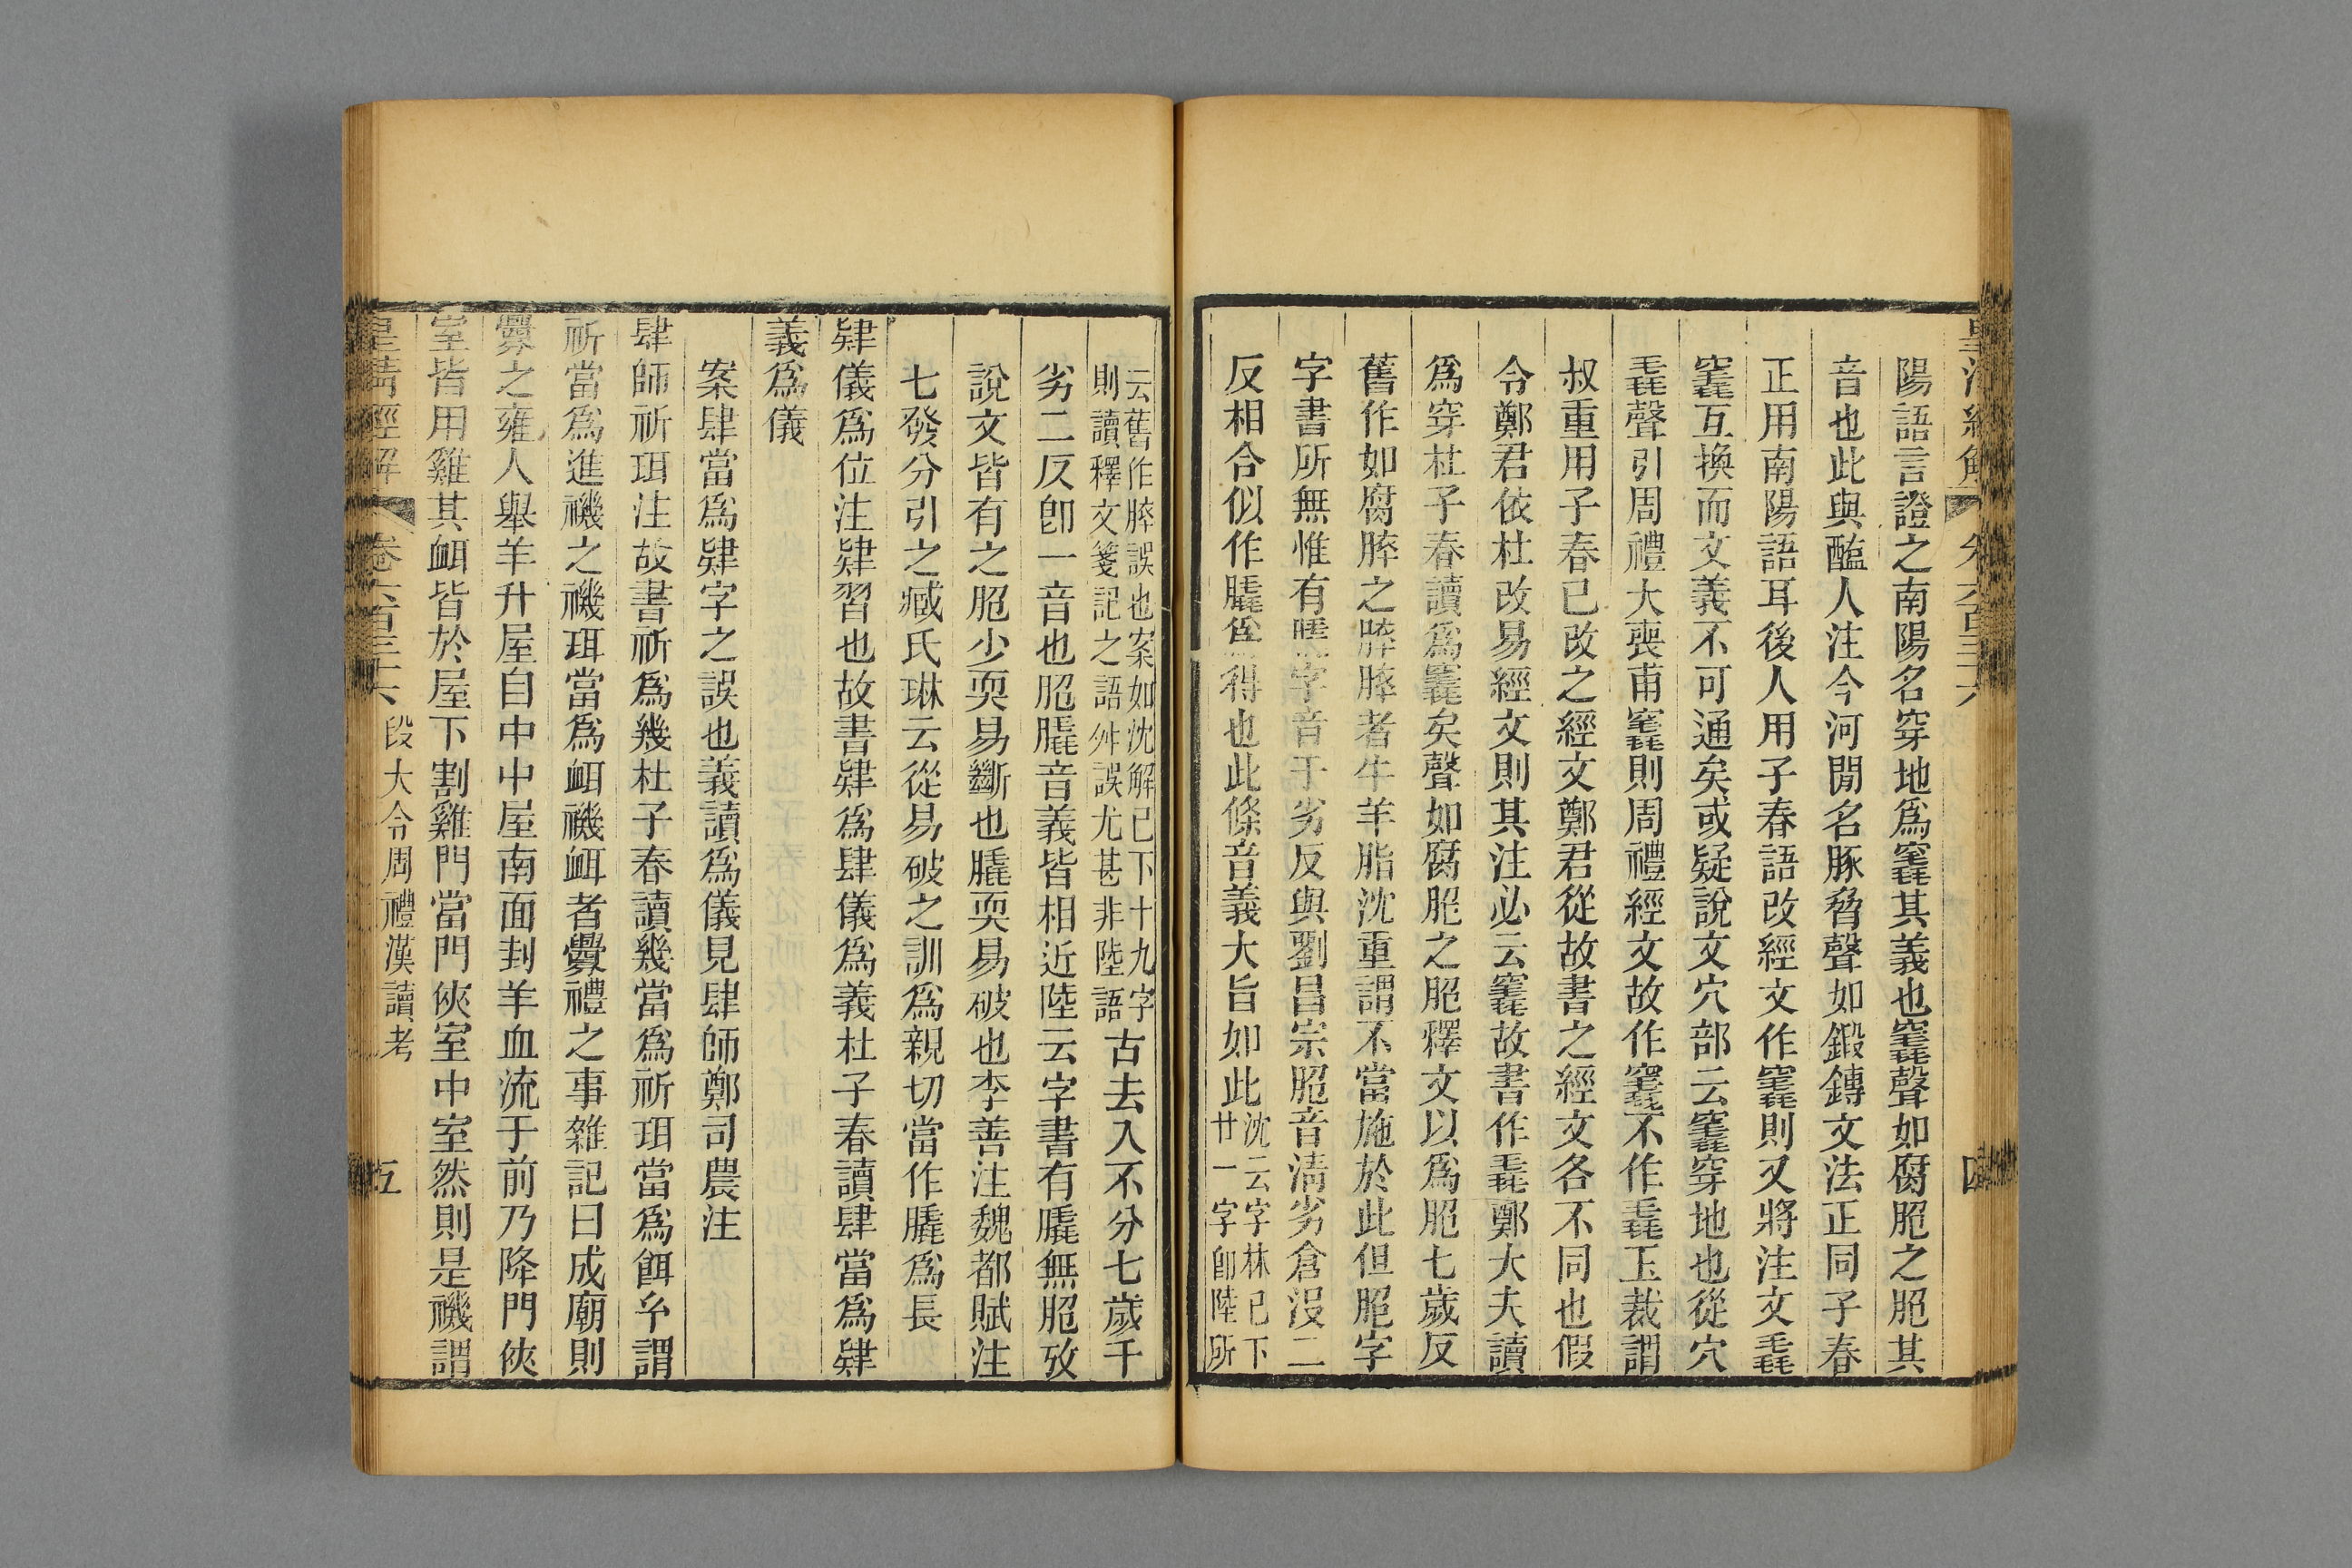 皇清經解
卷六百三十六
四
陽語言證之南陽名穿地爲竁其義也竁聲如腐脃之脃其
音也此與醢人注今河閒名豚脅聲如鍛鏄文法正同子春
正用南陽語耳後人用子春語改經文作竁則又將注文毳
竁互換而文義不可通矣或疑說文穴部云竁穿地也從穴
毳聲引周禮大喪甫竁則周禮經文故作竁不作毳玉裁謂
叔重用子春已改之經文鄭君從故書之經文各不同也假
令鄭君依杜改易經文則其注必云竁故書作毳鄭大夫讀
爲穿杜子春讀爲竁矣聲如腐脃之脃釋文以爲脃七歲反
舊作如腐脺之脺脺者牛羊脂沈重謂不當施於此但脃字
字書所無惟有膬字音千劣反與劉昌宗脃音淸劣倉沒二
反相合似作膬爲得也此條音義大旨如此
沈云字林已下
廿一字卽陸所
云舊作脺誤也案如沈解已下十九字
則讀釋文箋記之語舛誤尤甚非陸語
古去入不分七歲千
劣二反卽一音也脃膬音義皆相近陸云字書有膬無脃攷
說文皆有之脃少耎易斷也膬耎易破也李善注魏都賦注
七發分引之臧氏琳云從易破之訓爲親切當作膬爲長
肄儀爲位注肄習也故書肄爲肆儀爲義杜子春讀肆當爲肄
義爲儀
案肆當爲肄字之誤也義讀爲儀見肆師鄭司農注
肆師祈珥注故書祈爲幾杜子春讀幾當爲祈珥當爲餌玄謂
祈當爲進禨之禨珥當爲衈禨衈者釁禮之事雜記曰成廟則
釁之雍人舉羊升屋自中中屋南面刲羊血流于前乃降門俠
室皆用雞其衈皆於屋下割雞門當門俠室中室然則是禨謂
皇清經解
卷六百三十六
段大令周禮漢讀考
五